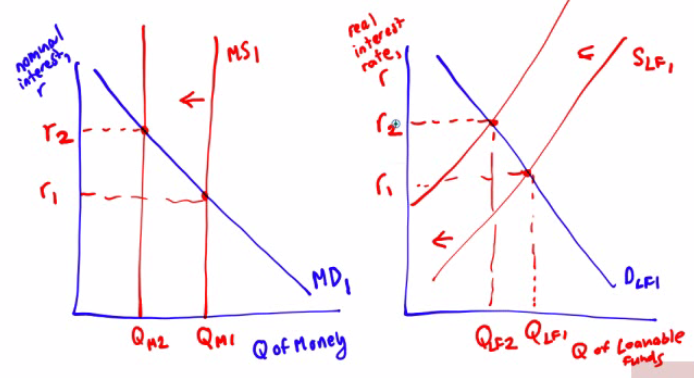 nominal
interest,
r
MS1
r2
r1
MD1
QM2
QM1
Q of Money
real
interest
rate,
r
SLF1
r2
r1
DLF1
QLF2
QLF1
Q of Loanable
Funds